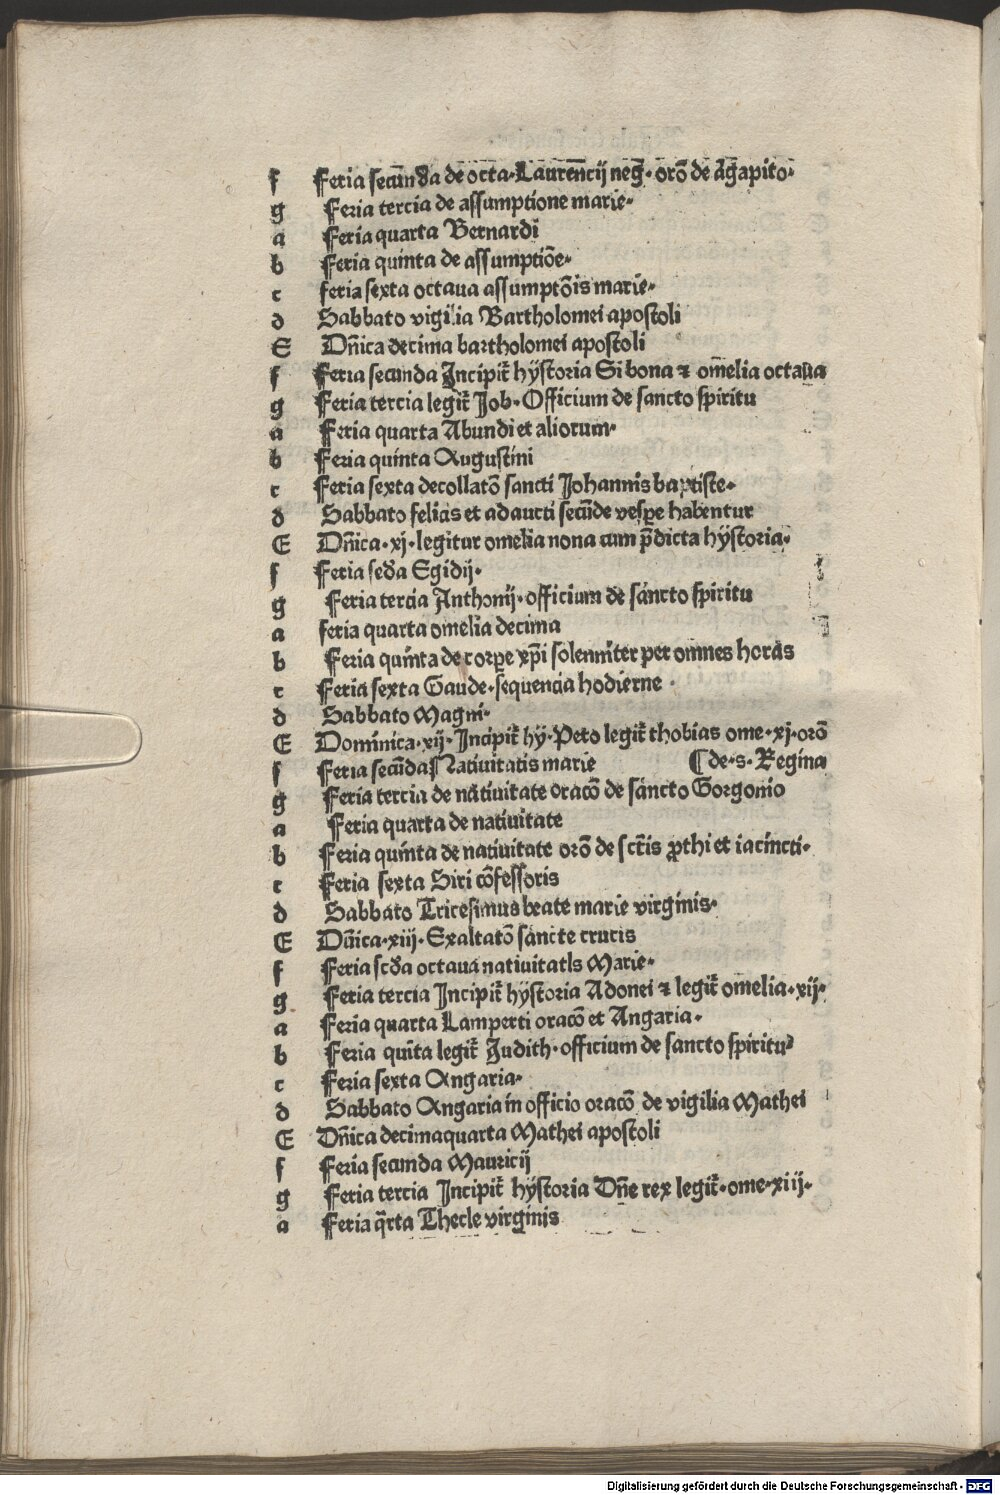 f Feria secunda de octa·Laurencij neg̅·orō de agapito·
g Feria tercia de assumptione marie·
a Feria quarta Bernardi
b Feria quinta de assumptiōe·
c feria sexta octaua assumptōis marie·
d Sabbato vigilia Bartholomei apostoli
E Dn̄ica decima bartholomei apostoli
f Feria secunda Incipit̄ hystoria Si bona ⁊ omelia octaua
g Feria tercia legit̄ Job·Officium de sancto spiritu
a Feria quarta Abundi et aliorum·
b Feria quinta Augustini
c Feria sexta decollatō sancti Johannis baptiste·
d Sabbato felicis et adaucti secūde vesꝑe habentur
E Dn̄ica·xj·legitur omelia nona cum p̄dicta hystoria·
f Feria scd̄a Egidij·
g Feria tercia Anthonij·officium de sancto spiritu
a feria quarta omelia decima
b Feria quinta de corꝑe xp̄i solenniter per omnes horas
c Feria sexta Gaude·sequencia hodierne·
d Sabbato Magni·
E Dominica·xij·Incipit̄ hy·Peto legit̄ thobias ome·xj·orō
f Feria secūda Natiuitatis marie ⸿de·s·Regina
g Feria tercia de natiuitate oracō de sancto Gorgonio
a Feria quarta de natiuitate
b Feria quinta de natiuitate orō de sctīs ꝓthi et iacincti·
c Feria sexta Siri cōfessoris
d Sabbato Tricesimus beate marie virginis·
E Dn̄ica·xiij·Exaltatō sancte crucis
f Feria scd̄a octaua natiuitatls Marie·
g Feria tercia Incipit̄ hystoria Adonei ⁊ legit̄ omelia·xij·
a Feria quarta Lamperti oracō et Angaria·
b Feria quīta legit̄ Judith·officium de sancto spiritu
c Feria sexta Angaria·
d Sabbato Angaria in officio oracō de vigilia Mathei
E Dn̄ica decimaquarta Mathei apostoli
f Feria secunda Mauricij
g Feria tercia Incipit̄ hystoria Dn̄e rex legit̄·ome·xiij·
a Feria q̄rta Thecle virginis
Digitalisierung gefördert durch die Deutsche Forschungsgemeinschaft - DFG